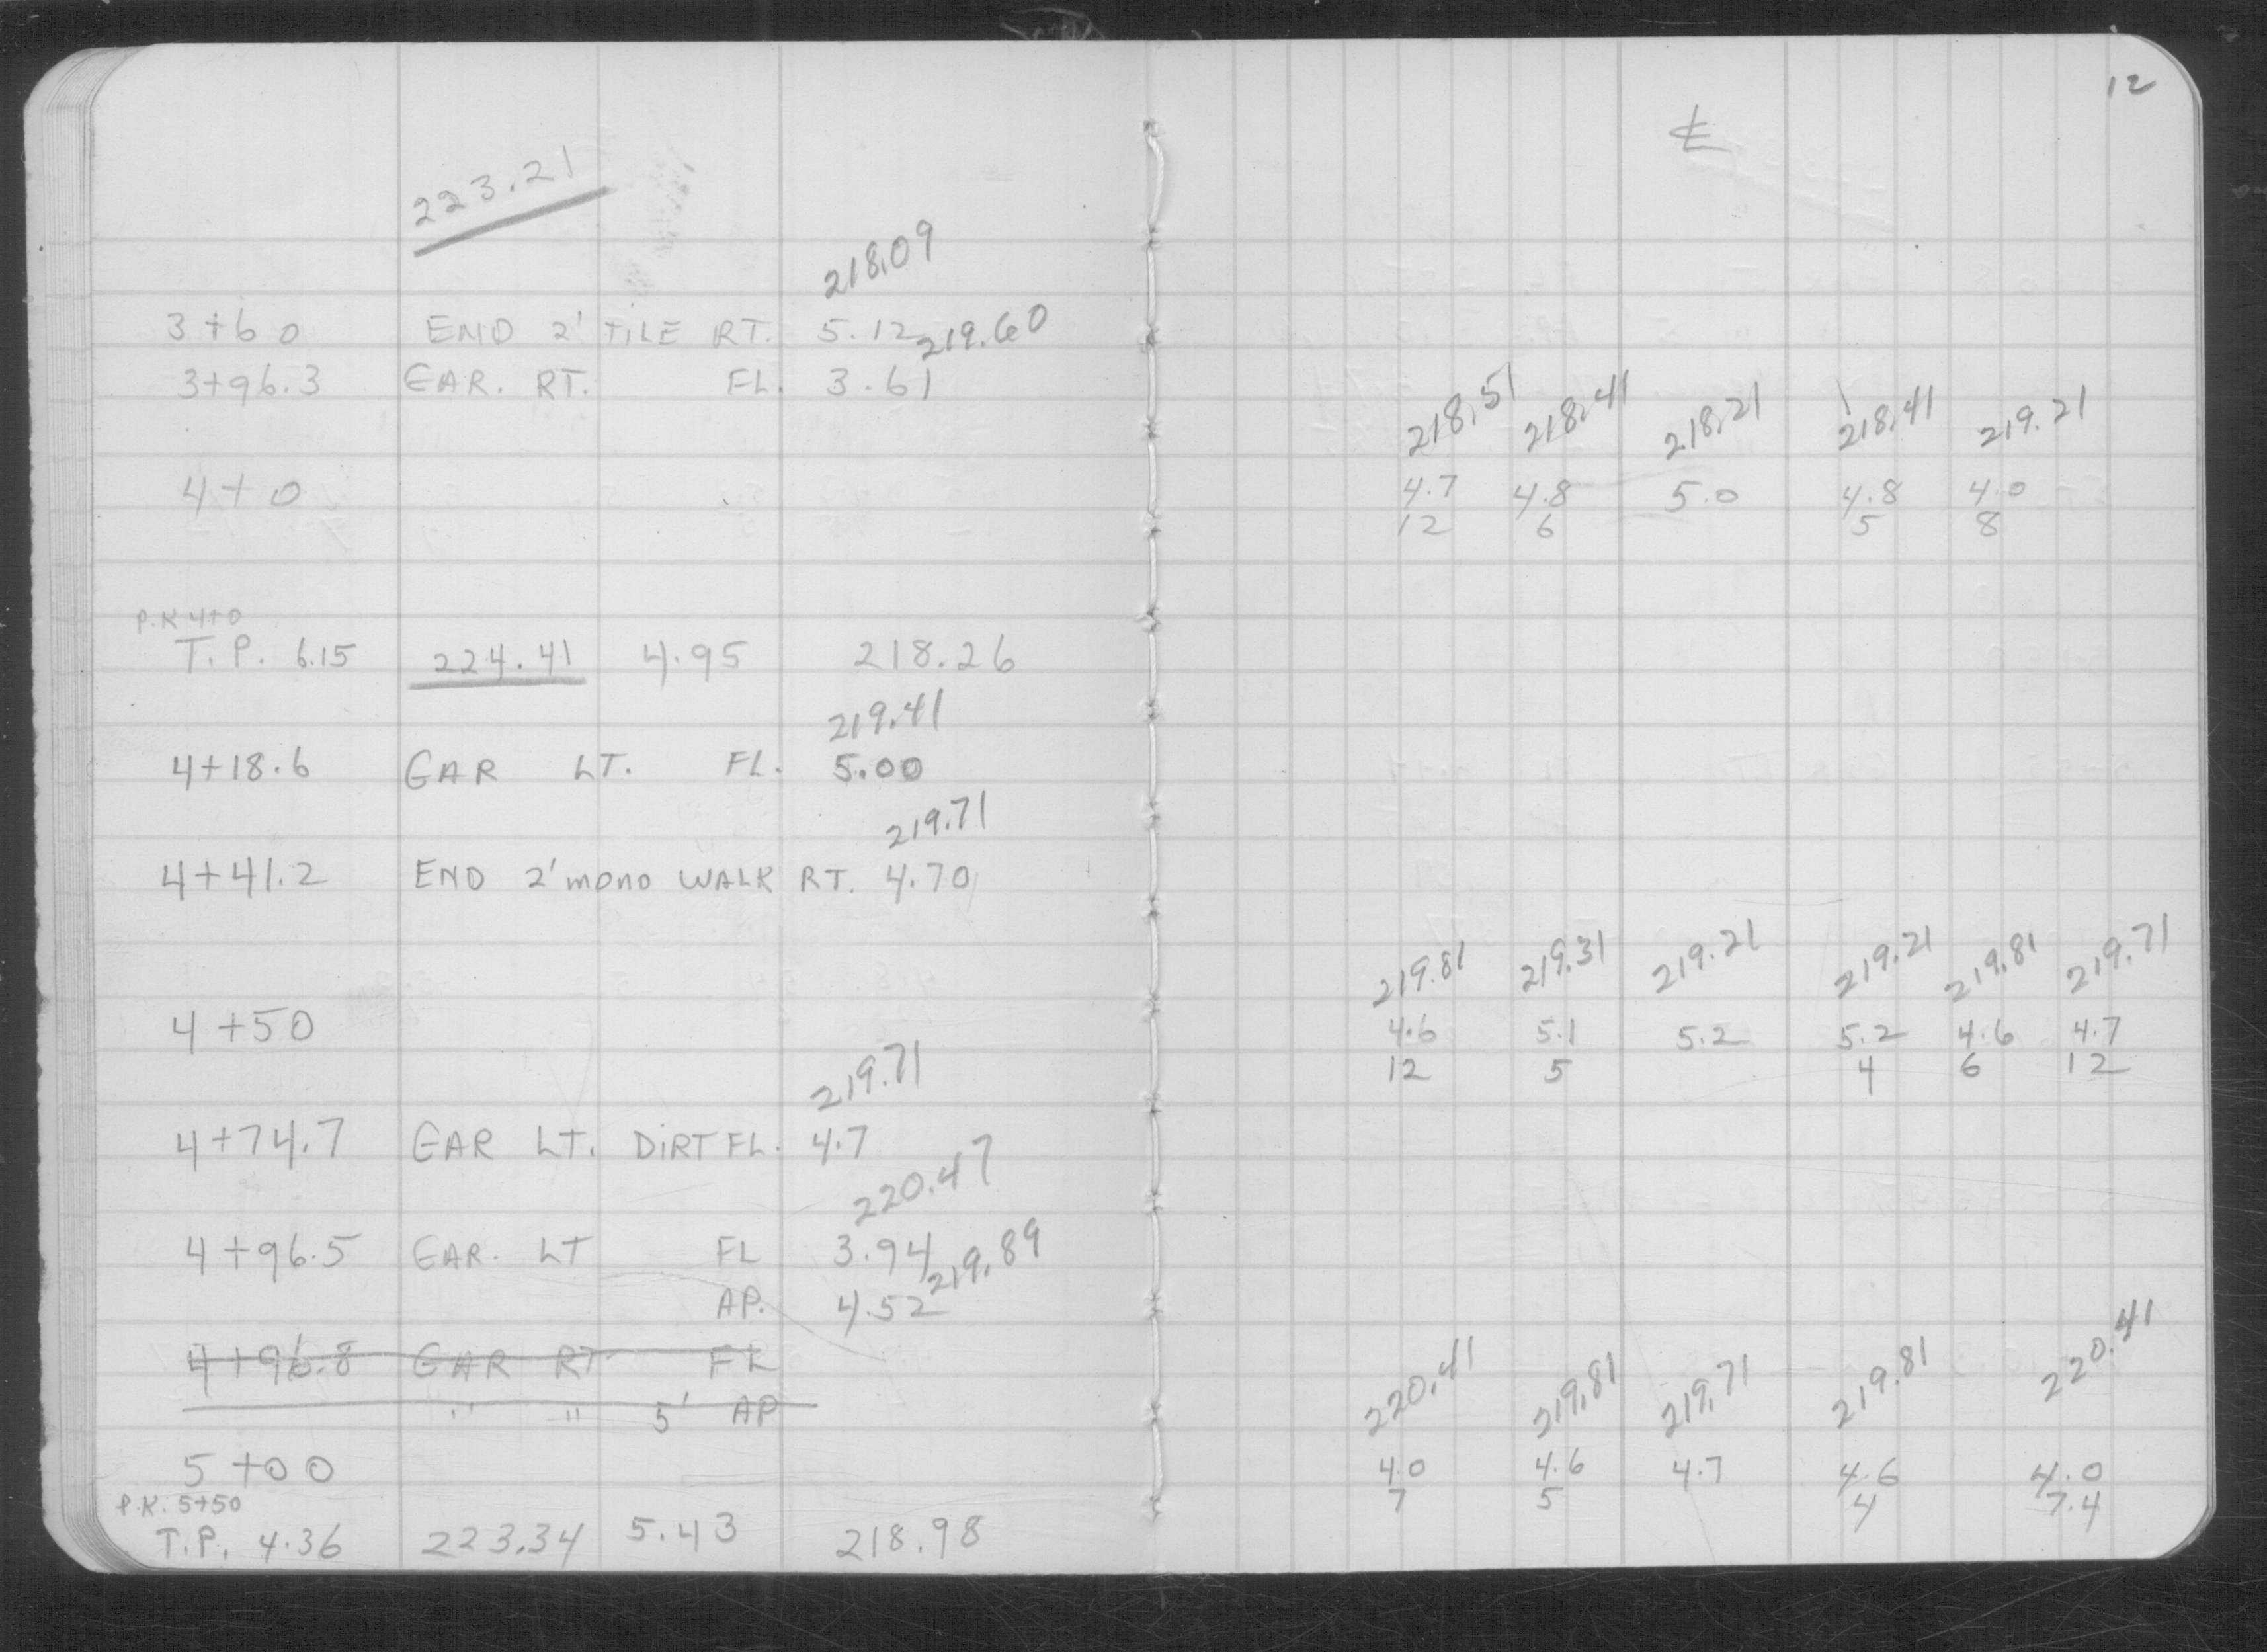 12
℄
223.21
218.09
3+60 END 2' TILE RT. 5.12
219.60
3+96.3 GAR. RT. FL. 3.61
218.51 218.41 218.21 218.41 219.21
4+0 4.7 4.8 5.0 4.8 4.0
12 6 5 8
P.K 4+0
T.P. 6.15 224.41 4.95 218.26
219.41
4+18.6 GAR LT. FL. 5.00
219.71
4+41.2 END 2' mono WALK RT. 4.70
219.81 219.31 219.21 219.21 219.81 219.71
4+50 4.6 5.1 5.2 5.2 4.6 4.7
12 5 4 6 12
219.71
4+74.7 GAR LT. DIRT FL. 4.7
220.47
4+96.5 GAR. LT FL 3.94
219.89
AP. 4.52
4+96.8 GAR RT FL
" " 5' AP
220.41 219.81 219.71 219.81 220.41
5+00 4.0 4.6 4.7 4.6 4.0
7 5 4 7.4
P.K. 5+50
T.P. 4.36 223.34 5.43 218.98